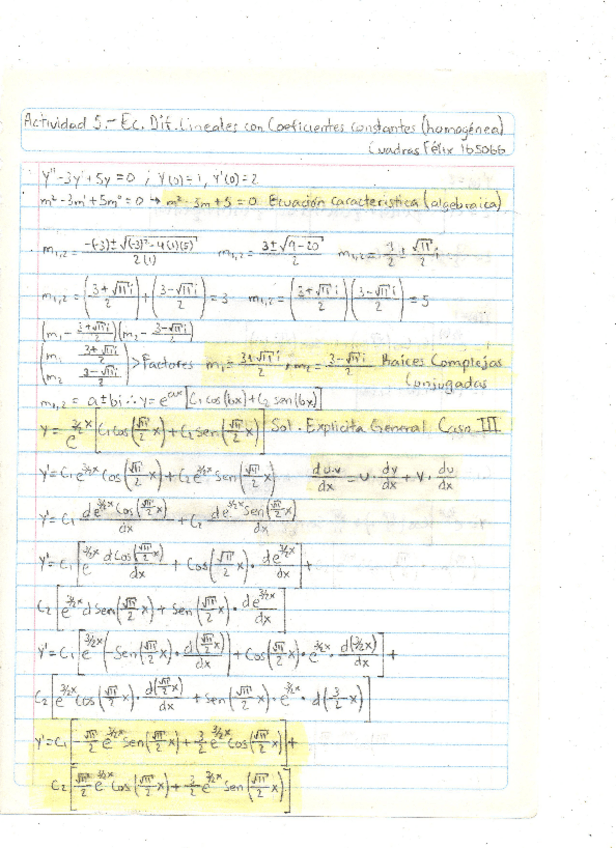 Actividad 5.- Ec. Dif. Lineales con Coeficientes constantes (homogénea)
Cuadras Félix 165066
y'' - 3y' + 5y = 0 ; y(0) = 1, y'(0) = 2
m² - 3m' + 5m° = 0 → m² - 3m + 5 = 0 Ecuación característica (algebraica)
m₁,₂ = (-(-3) ± √((-3)² - 4(1)(5))) / 2(1)   m₁,₂ = (3 ± √(9 - 20)) / 2   m₁,₂ = 3/2 ± √11/2 i
m₁,₂ = ((3 + √11 i)/2) + ((3 - √11 i)/2) = 3   m₁,₂ = ((3 + √11 i)/2)((3 - √11 i)/2) = 5
(m₁ - (3 + √11 i)/2)(m₂ - (3 - √11 i)/2)
(m₁ (3 + √11 i)/2
m₂ (3 - √11 i)/2) > Factores   m₁ = (3 + √11 i)/2, m₂ = (3 - √11 i)/2 Raíces Complejas
Conjugadas
m₁,₂ = a ± bi ∴ y = e^(ax) [C₁ cos(bx) + C₂ sen(bx)]
y = e^(3/2 x) [C₁ cos(√11/2 x) + C₂ sen(√11/2 x)] Sol. Explicita General Caso III
y' = C₁ e^(3/2 x) cos(√11/2 x) + C₂ e^(3/2 x) sen(√11/2 x)   du·v/dx = u · dv/dx + v · du/dx
y' = C₁ de^(3/2 x) cos(√11/2 x)/dx + C₂ de^(3/2 x) sen(√11/2 x)/dx
y' = C₁ [e^(3/2 x) d cos(√11/2 x)/dx + cos(√11/2 x) · de^(3/2 x)/dx] +
C₂ [e^(3/2 x) d sen(√11/2 x) + sen(√11/2 x) · de^(3/2 x)/dx]
y' = C₁ [e^(3/2 x) (-sen(√11/2 x) · d(√11/2 x)/dx) + cos(√11/2 x) · e^(3/2 x) · d(3/2 x)/dx] +
C₂ [e^(3/2 x) cos(√11/2 x) · d(√11/2 x)/dx + sen(√11/2 x) · e^(3/2 x) · d(3/2 x)]
y' = C₁ [-√11/2 e^(3/2 x) sen(√11/2 x) + 3/2 e^(3/2 x) cos(√11/2 x)] +
C₂ [√11/2 e^(3/2 x) cos(√11/2 x) + 3/2 e^(3/2 x) sen(√11/2 x)]